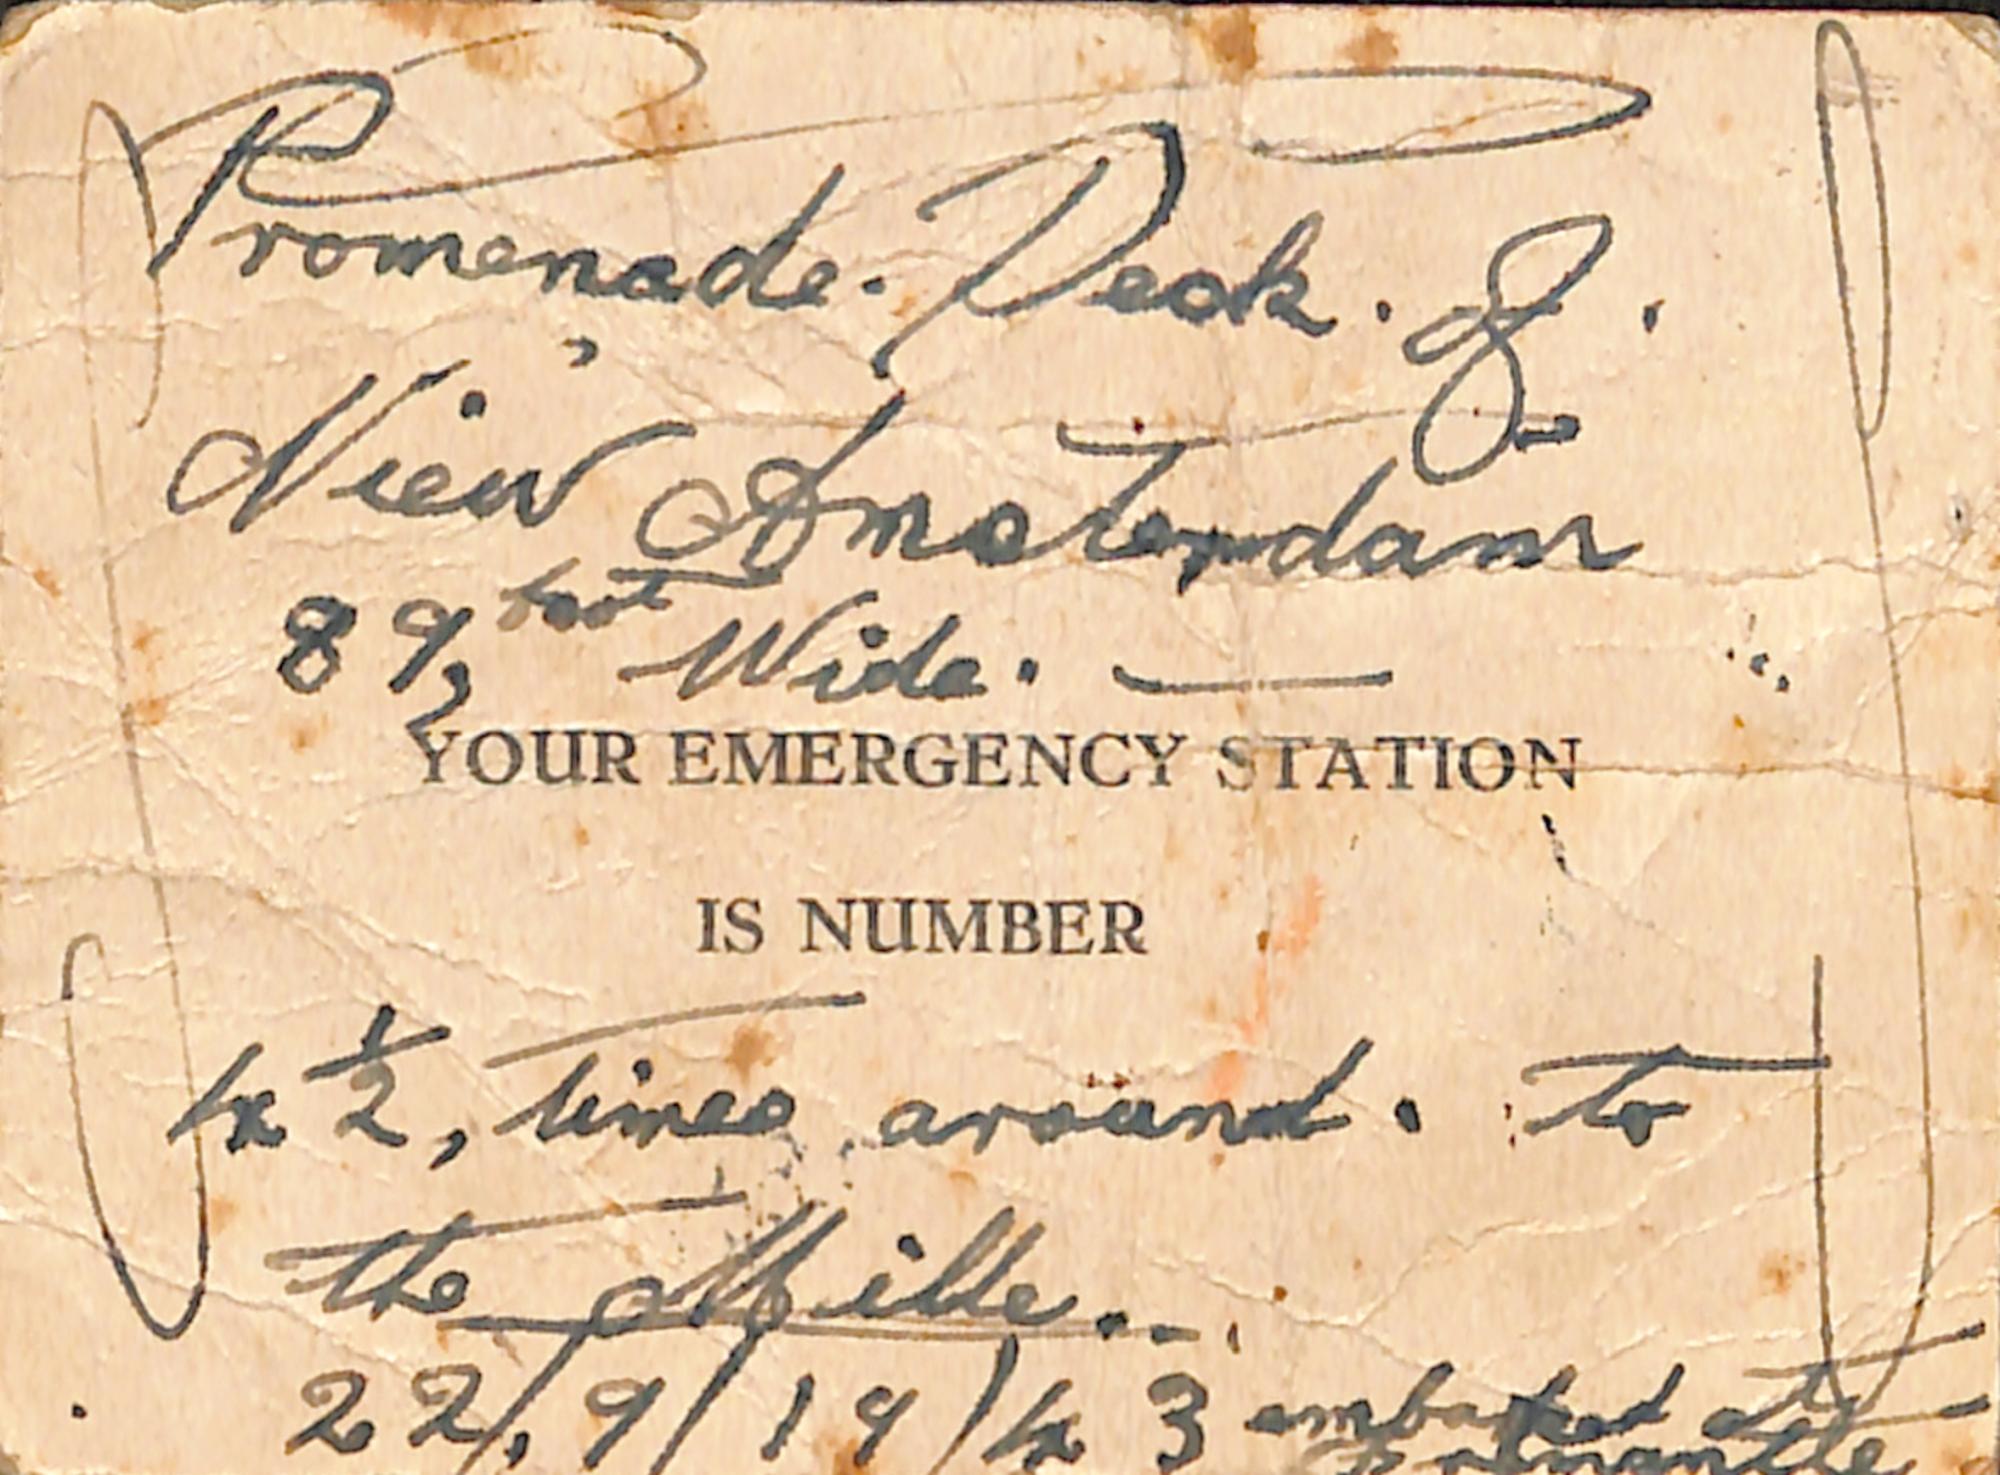 Promenade. Deck. of.
New Amsterdam
89, foot Wide. —
YOUR EMERGENCY STATION
IS NUMBER
4 1/2, times around. to
the Mille..
22/9/1943 embarked at
Fremantle